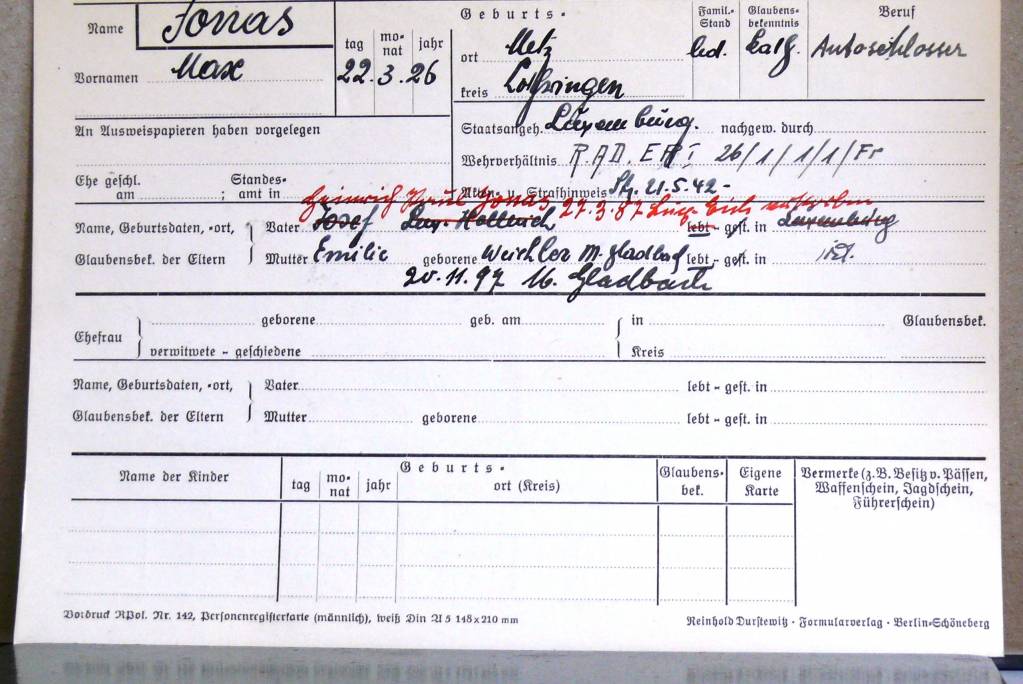 Name Jonas
Geburts-
Famil.-Stand
Glaubens-bekenntnis
Beruf
tag monat jahr
ort Metz
led. Kath. Autoschlosser
Vornamen Max 22. 3. 26
kreis Lothringen
An Ausweispapieren haben vorgelegen
Staatsangeh. Luxemburg. nachgew. durch
Wehrverhältnis R.A.D. 26/1/1/1/Fr
Ehe geschl. am ; Standes-amt in
Akten- u. Strafhinweis 21.5.42-
Heinrich Paul Jonas 27.3.87 Lux. Eich
Name, Geburtsdaten, -ort, Vater Josef lebt - gest. in Luxemburg
Glaubensbek. der Eltern Mutter Emilie geborene M. Gladbach lebt - gest. in id.
20.11.97 M. Gladbach
Ehefrau geborene geb. am in Glaubensbek.
verwitwete - geschiedene Kreis
Name, Geburtsdaten, -ort, Vater lebt - gest. in
Glaubensbek. der Eltern Mutter geborene lebt - gest. in
Name der Kinder
Geburts-
tag monat jahr ort (Kreis)
Glaubens-bek.
Eigene Karte
Vermerke (z.B. Besitz v. Pässen,
Waffenschein, Jagdschein,
Führerschein)
Vordruck RPol. Nr. 142, Personenregisterkarte (männlich), weiß Din A 5 148 x 210 mm
Reinhold Durstewitz · Formularverlag · Berlin-Schöneberg